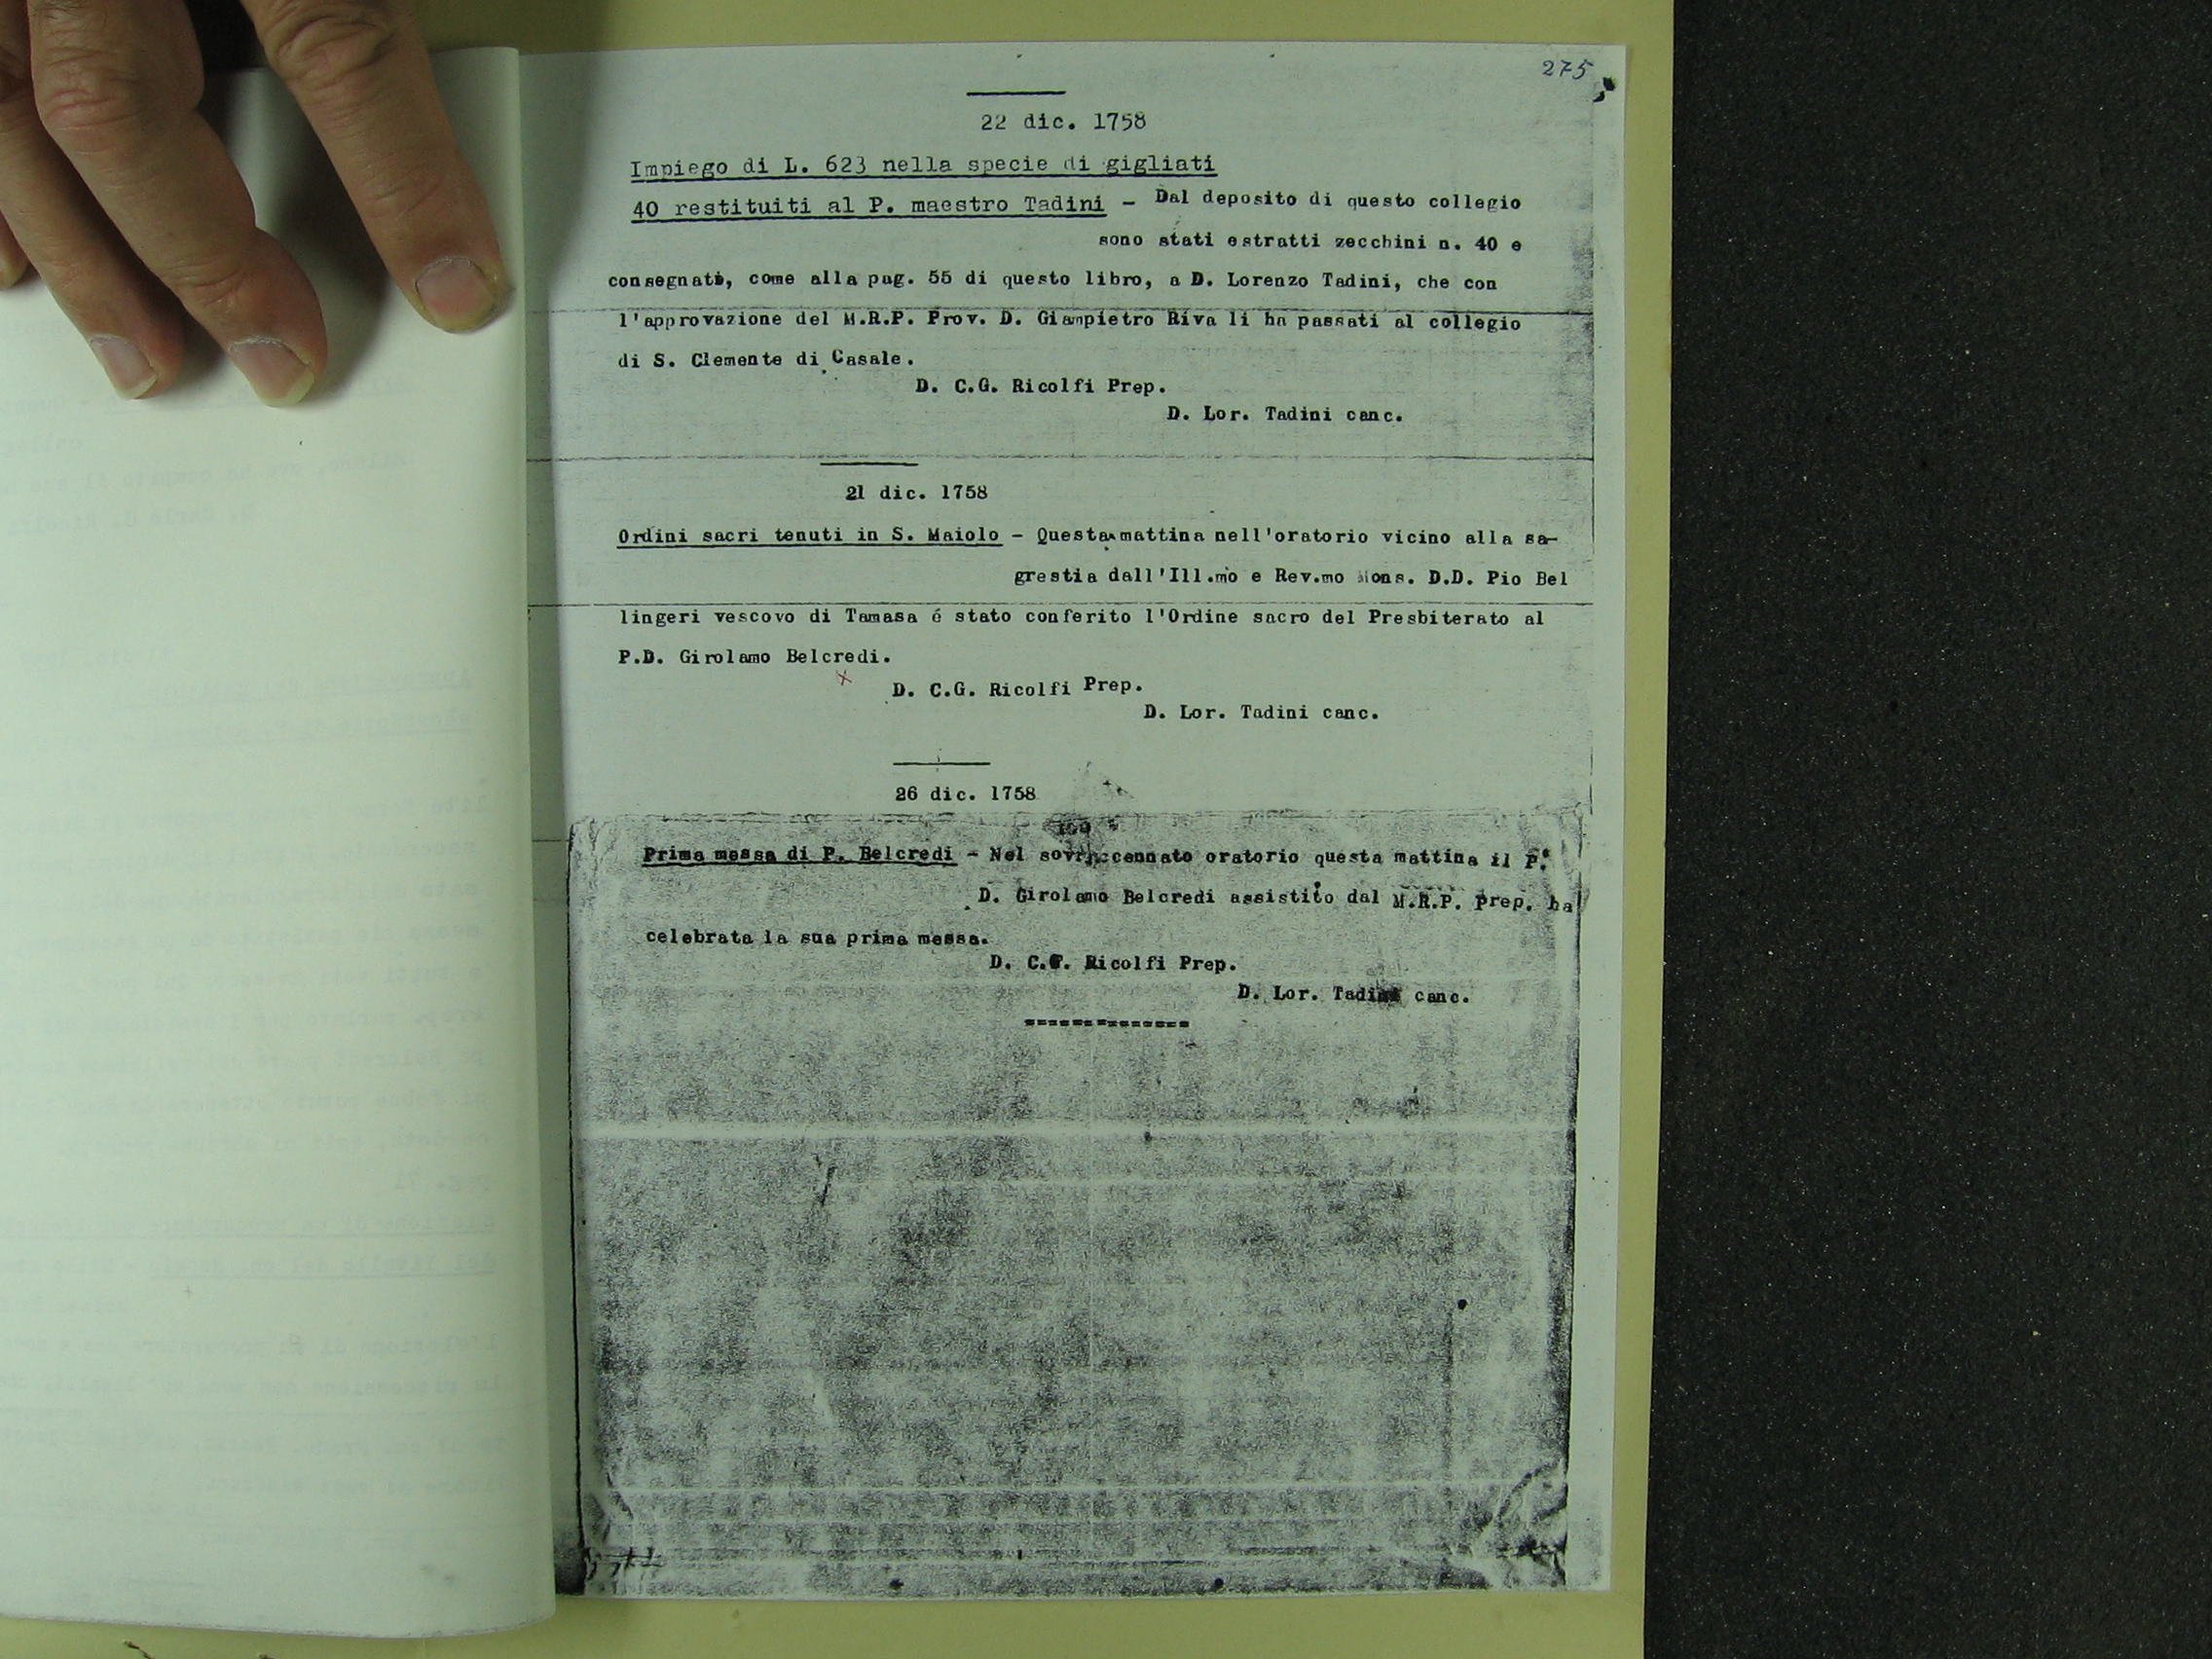 275
22 dic. 1758
Impiego di L. 623 nella specie di gigliati
40 restituiti al P. maestro Tadini - Dal deposito di questo collegio
sono stati estratti zecchini n. 40 e
consegnati, come alla pag. 55 di questo libro, a D. Lorenzo Tadini, che con
l'approvazione del M.R.P. Prov. D. Giampietro Riva li ha passati al collegio
di S. Clemente di Casale.
D. C.G. Ricolfi Prep.
D. Lor. Tadini canc.
21 dic. 1758
Ordini sacri tenuti in S. Maiolo - Questa mattina nell'oratorio vicino alla sa-
grestia dall'Ill.mo e Rev.mo Mons. D.D. Pio Bel
lingeri vescovo di Tamasa é stato conferito l'Ordine sacro del Presbiterato al
P.D. Girolamo Belcredi.
D. C.G. Ricolfi Prep.
D. Lor. Tadini canc.
26 dic. 1758
Prima messa di P. Belcredi - Nel sovraccennato oratorio questa mattina il P.
D. Girolamo Belcredi assistito dal M.R.P. Prep. ha
celebrata la sua prima messa.
D. C.G. Ricolfi Prep.
D. Lor. Tadini canc.